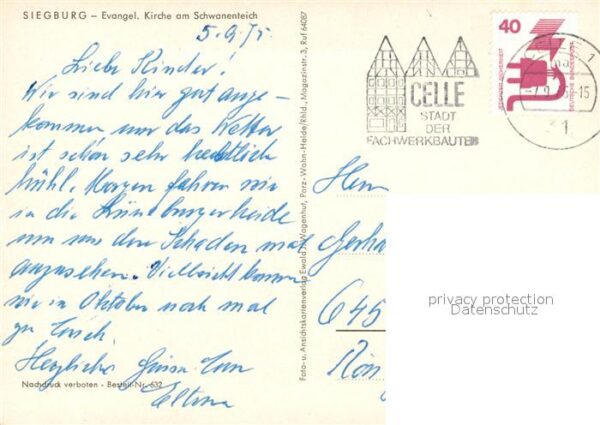 SIEGBURG – Evangel. Kirche am Schwanenteich
5.9.75
Liebe Kinder!
Wir sind hier gut ange-
kommen nur das Wetter
ist schon sehr herbstlich
kühl. Morgen fahren wir
in die Lüneburgerheide
um uns den Schaden mal
anzusehen. Vielleicht kommen
wir im Oktober noch mal
zu Euch.
Herzliche Grüsse Eure
Eltern
Nachdruck verboten - Bestell-Nr. 632
Foto- u. Ansichtskartenverlag Ewald J. Wagenhut, Porz-Wahn-Heide/Rhld., Magazinstr. 3, Ruf 64087
CELLE
STADT
DER
FACHWERKBAUTEN
40
DEUTSCHE BUNDESPOST
31
-15
Herrn
Gerha
645
privacy protection
Datenschutz